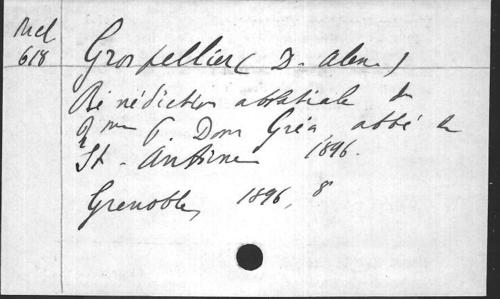 Mel
618
Grospellier (D. Alex.)
Bénédiction abbatiale du
Rme P. Dom Gréa, abbé de
St-Antoine 1896.
Grenoble, 1896, 8°